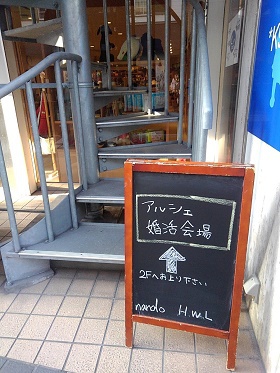 アルシェ
婚活会場
2Fへお上り下さい
nando H.W.L